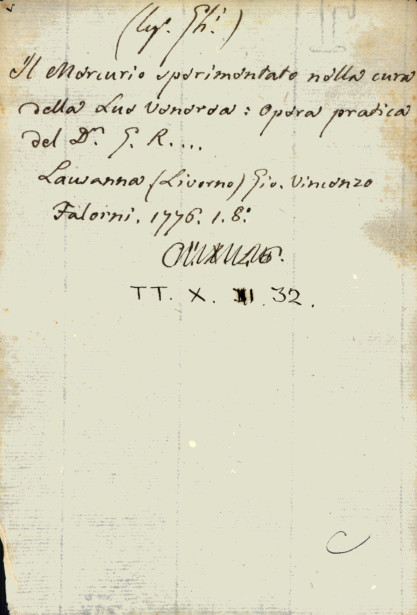 Il Mercurio sperimentato nella cura
della Lue Venerea: Opera pratica
del D.r G. R....
Lausanna (Livorno) Gio. Vincenzo
Falorni. 1776. 1. 8.o
TT. X. 32.